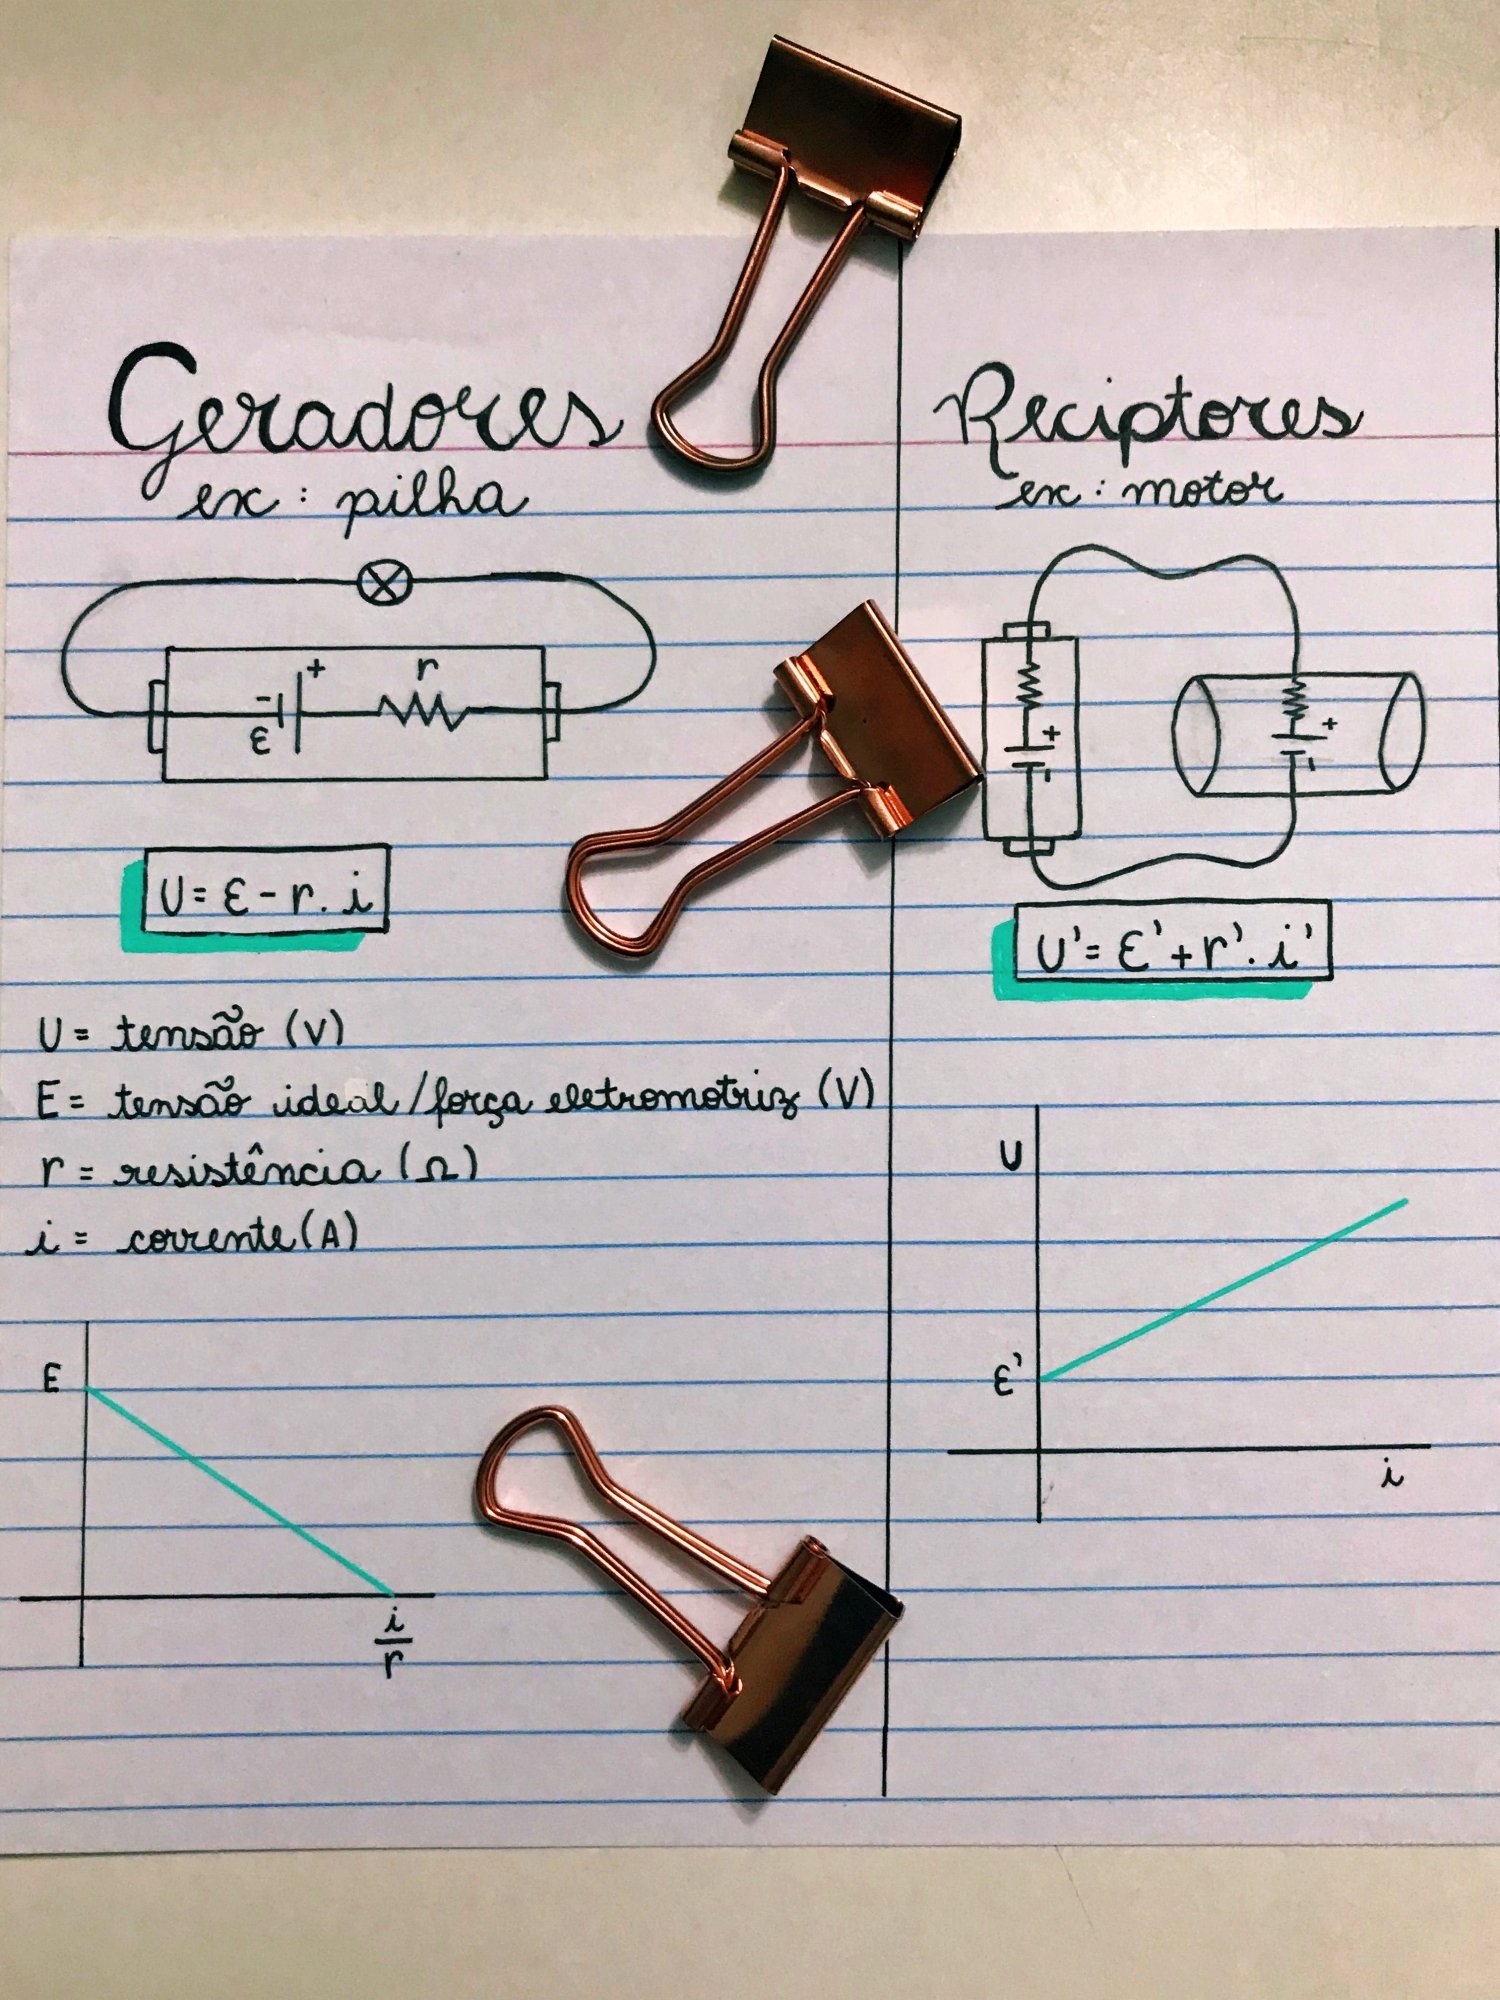 Geradores
ex: pilha
- +
ε
r
U = ε - r. i
U = tensão (V)
E = tensão ideal/força eletromotriz (V)
r = resistência (Ω)
i = corrente (A)
E
i
r
Reciptores
ex: motor
+
-
+
-
U' = ε' + r'. i'
U
ε'
i